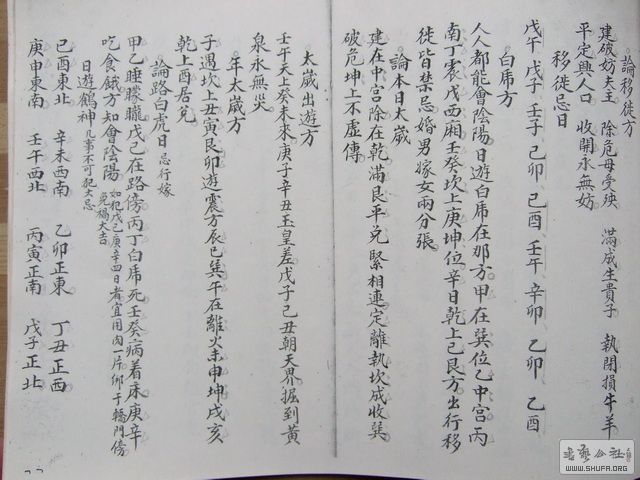 論移徙方
建破妨夫主 除危母受殃 滿成生貴子 執閉損牛羊
平定興人口 收開永無妨
移徙忌日
戊午 戊子 壬子 己卯 己酉 壬午 辛卯 乙卯 乙酉
白虎方
人人都能會陰陽日遊白虎在那方甲在巽位乙中宮丙
南丁震戊西廂壬癸坎上庚坤位辛日乾上己艮方出行移
徙皆禁忌婚男嫁女兩分張
論本日太歲
建在中宮除在乾滿艮平兌緊相連定離執坎成收巽
破危坤上不虛傳
太歲出遊方
壬午天上癸未來庚子辛丑玉皇差戊子己丑朝天界掘到黃
泉永無災
年太歲方
子遇坎上丑寅艮卯遊震方辰巳巽午在離火未申坤戌亥
乾上酉居兌
論路白虎日 忌行嫁
甲乙矇矓戊己在路傍丙丁白虎死壬癸病着床庚辛
吃食餓方知會陰陽 如犯戊己庚辛四日者宜用肉一片綁于轎門傍
免禍大吉
日遊鶴神 凡事不可犯大忌
己酉東北 辛未西南 乙卯正東 丁丑正西
庚申東南 壬午西北 丙寅正南 戊子正北
書藝公社
WWW.SHUFA.ORG